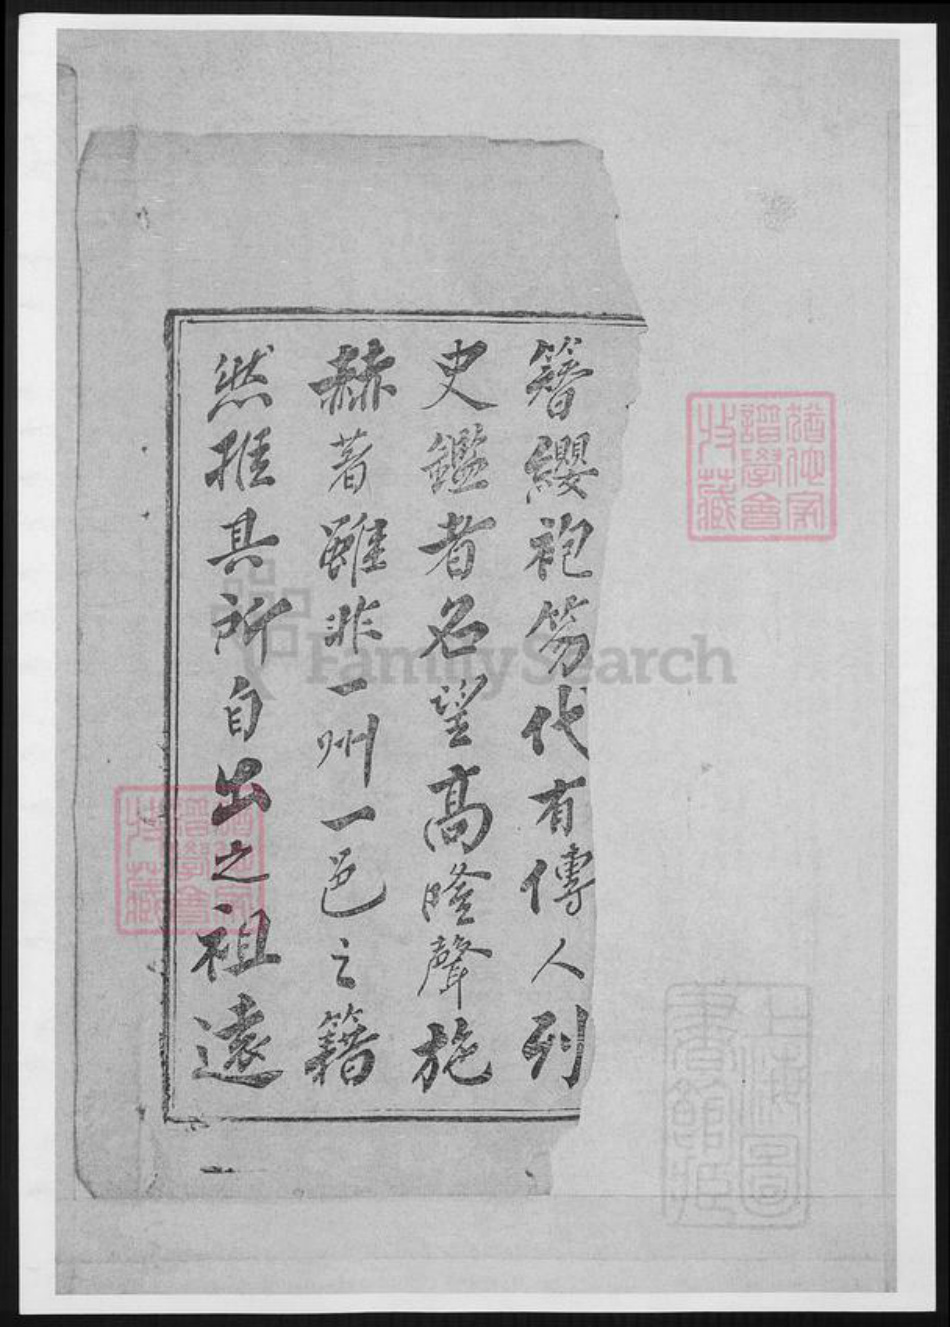 簪纓袍笏代有傳人列
史鑑者名望高隆聲施
赫著雖非一州一邑之籍
然推其所自出之祖遠
譜學會
收藏
FamilySearch
上海圖
書館藏